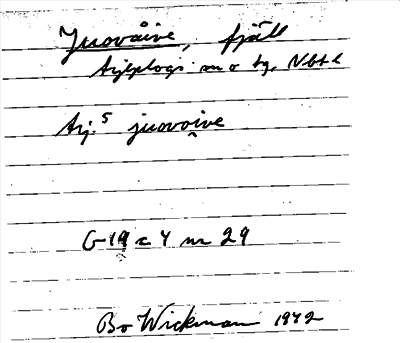 Juovåive, fjäll
Arjeplogs sn o tg, Nbt l
Arj. 5 juovoi̯ve
G 19 c 4 nr 29
Bo Wickman 1972